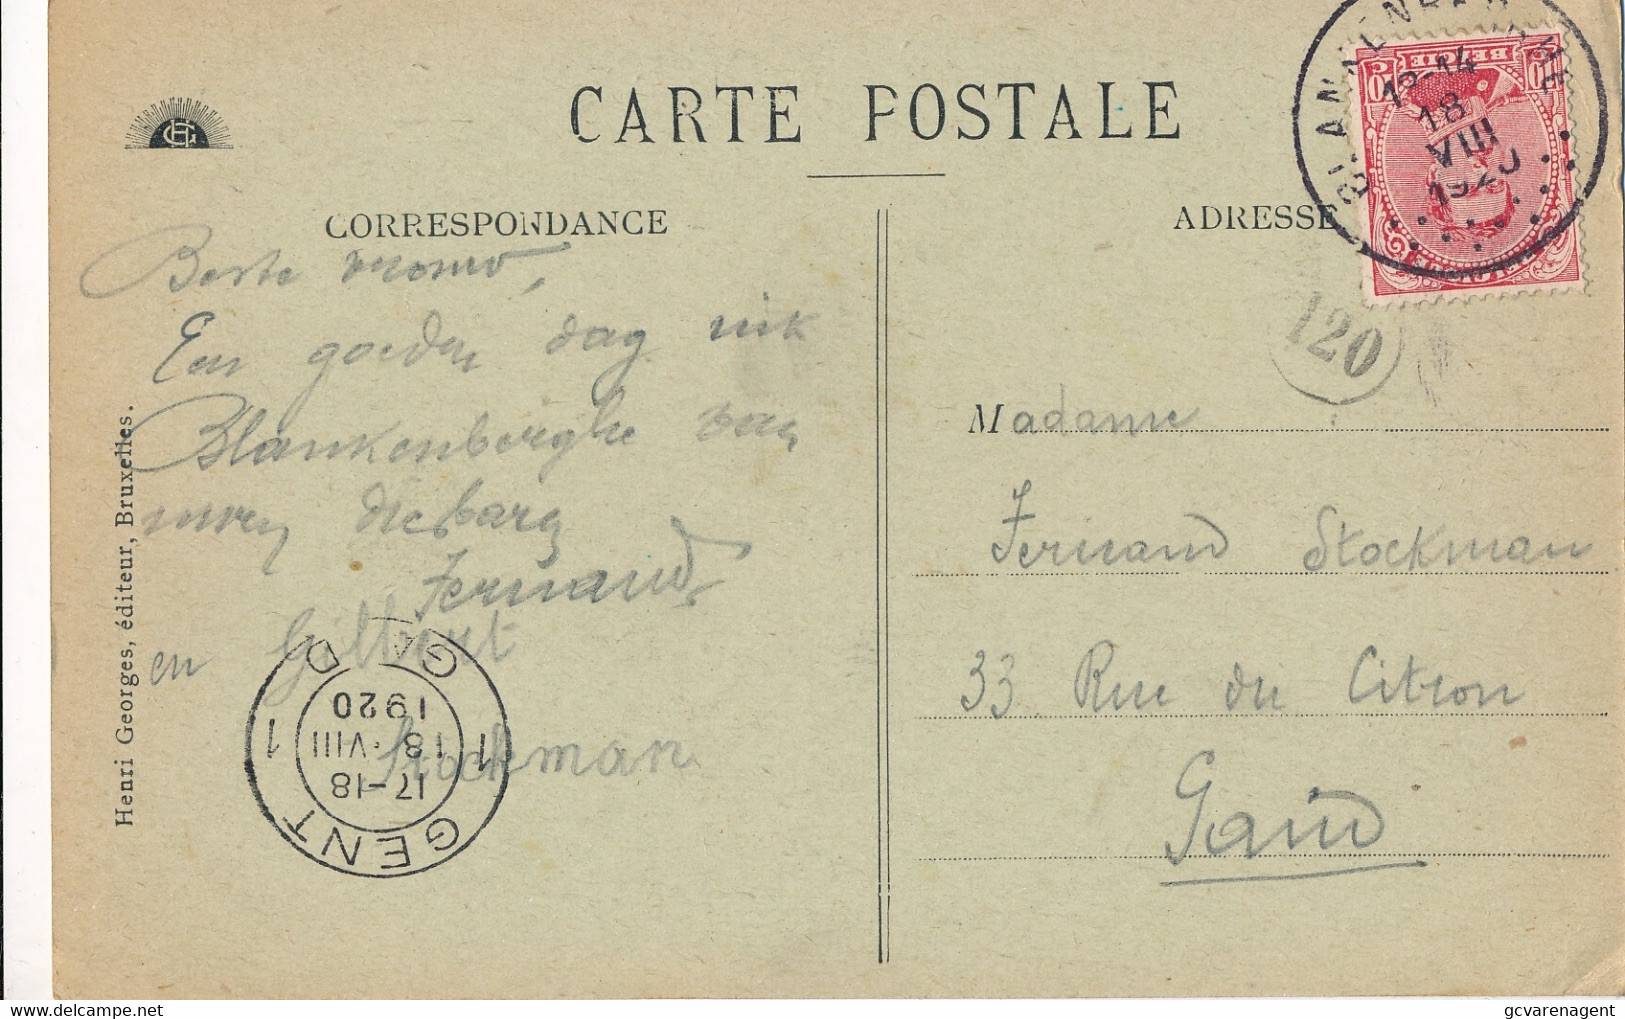 CARTE POSTALE
CORRESPONDANCE
ADRESSE
BELGIE
BLANKENBERGHE
18
VIII
1920
120
Beste
Een goeden dag uit
Blankenberghe van
Fernand
en Gilbert
Stockman
Madame
Fernand Stockman
33 Rue du Citron
Gand
GENT 1
17-18
18·VIII
1920
1 GAND
Henri Georges, éditeur, Bruxelles.
gcvarenagent